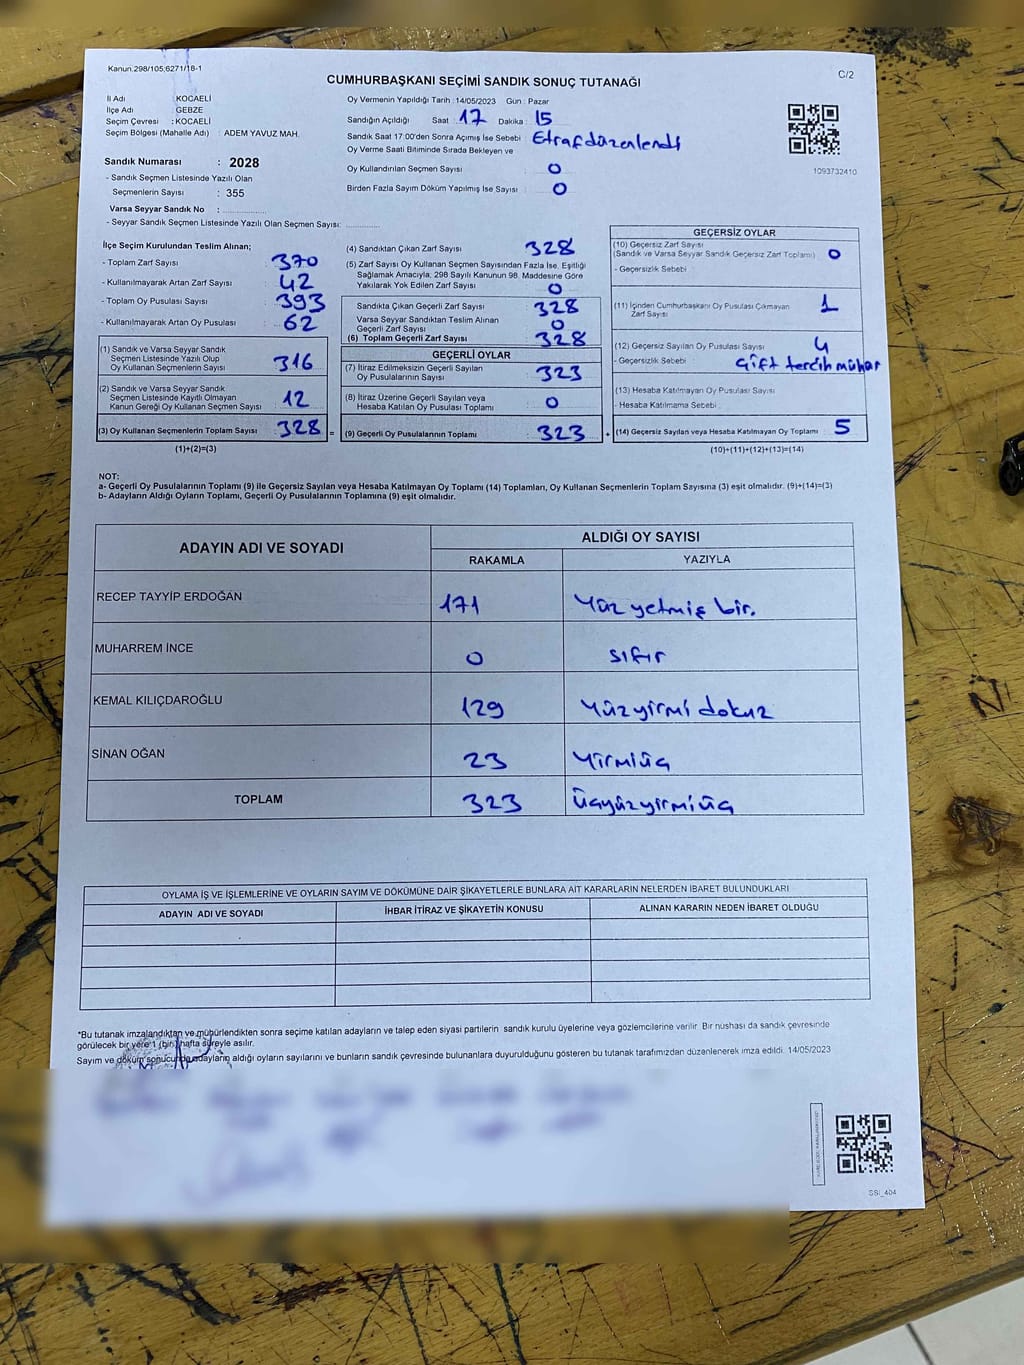 Kanun.298/105;6271/18-1
CUMHURBAŞKANI SEÇİMİ SANDIK SONUÇ TUTANAĞI
C/2
İl Adı : KOCAELİ
İlçe Adı : GEBZE
Seçim Çevresi : KOCAELİ
Seçim Bölgesi (Mahalle Adı) : ADEM YAVUZ MAH.
Sandık Numarası : 2028
- Sandık Seçmen Listesinde Yazılı Olan
Seçmenlerin Sayısı : 355
Varsa Seyyar Sandık No :
- Seyyar Sandık Seçmen Listesinde Yazılı Olan Seçmen Sayısı:
Oy Vermenin Yapıldığı Tarih :14/05/2023 Gün : Pazar
Sandığın Açıldığı Saat 17 Dakika 15
Sandık Saat 17:00'den Sonra Açımış İse Sebebi Etraf düzenlendi
Oy Verme Saati Bitiminde Sırada Bekleyen ve
Oy Kullandırılan Seçmen Sayısı 0
Birden Fazla Sayım Döküm Yapılmış İse Sayısı 0
1093732410
İlçe Seçim Kurulundan Teslim Alınan;
- Toplam Zarf Sayısı 370
- Kullanılmayarak Artan Zarf Sayısı 42
- Toplam Oy Pusulası Sayısı 393
- Kullanılmayarak Artan Oy Pusulası 62
(1) Sandık ve Varsa Seyyar Sandık
Seçmen Listesinde Yazılı Olup
Oy Kullanan Seçmen Sayısı 316
(2) Sandık ve Varsa Seyyar Sandık
Seçmen Listesinde Kayıtlı Olmayan
Kanun Gereği Oy Kullanan Seçmen Sayısı 12
(3) Oy Kullanan Seçmenlerin Toplam Sayısı 328 =
(1)+(2)=(3)
(4) Sandıktan Çıkan Zarf Sayısı 328
(5) Zarf Sayısı Oy Kullanan Seçmen Sayısından Fazla İse, Eşitliği
Sağlamak Amacıyla; 298 Sayılı Kanunun 98. Maddesine Göre
Yakılarak Yok Edilen Zarf Sayısı 0
Sandıkta Çıkan Geçerli Zarf Sayısı 328
Varsa Seyyar Sandıktan Teslim Alınan
Geçerli Zarf Sayısı 0
(6) Toplam Geçerli Zarf Sayısı 328
GEÇERLİ OYLAR
(7) İtiraz Edilmeksizin Geçerli Sayılan
Oy Pusulalarının Sayısı 323
(8) İtiraz Üzerine Geçerli Sayılan veya
Hesaba Katılan Oy Pusulası Toplamı 0
(9) Geçerli Oy Pusulalarının Toplamı 323 +
GEÇERSİZ OYLAR
(10) Geçersiz Zarf Sayısı
(Sandık ve Varsa Seyyar Sandık Geçersiz Zarf Toplamı) 0
- Geçersizlik Sebebi
(11) İçinden Cumhurbaşkanı Oy Pusulası Çıkmayan
Zarf Sayısı 1
(12) Geçersiz Sayılan Oy Pusulası Sayısı 4
- Geçersizlik Sebebi : Çift tercih mühür
(13) Hesaba Katılmayan Oy Pusulası Sayısı
- Hesaba Katılmama Sebebi
(14) Geçersiz Sayılan veya Hesaba Katılmayan Oy Toplamı 5
(10)+(11)+(12)+(13)=(14)
NOT:
a- Geçerli Oy Pusulalarının Toplamı (9) ile Geçersiz Sayılan veya Hesaba Katılmayan Oy Toplamı (14) Toplamları, Oy Kullanan Seçmenlerin Toplam Sayısına (3) eşit olmalıdır. (9)+(14)=(3)
b- Adayların Aldığı Oyların Toplamı, Geçerli Oy Pusulalarının Toplamına (9) eşit olmalıdır.
ADAYIN ADI VE SOYADI
ALDIĞI OY SAYISI
RAKAMLA YAZIYLA
RECEP TAYYİP ERDOĞAN 171 Yüz yetmiş bir.
MUHARREM İNCE 0 sıfır
KEMAL KILIÇDAROĞLU 129 Yüzyirmi dokuz
SİNAN OĞAN 23 Yirmiüç
TOPLAM 323 Üçyüzyirmiüç
OYLAMA İŞ VE İŞLEMLERİNE VE OYLARIN SAYIM VE DÖKÜMÜNE DAİR ŞİKAYETLERLE BUNLARA AİT KARARLARIN NELERDEN İBARET BULUNDUKLARI
ADAYIN ADI VE SOYADI İHBAR İTİRAZ VE ŞİKAYETİN KONUSU ALINAN KARARIN NEDEN İBARET OLDUĞU
*Bu tutanak imzalandıktan ve mühürlendikten sonra seçime katılan adayların ve talep eden siyasi partilerin sandık kurulu üyelerine veya gözlemcilerine verilir. Bir nüshası da sandık çevresinde
görülecek bir yere 1 (bir) hafta süreyle asılır.
Sayım ve döküm sonucunda adayların aldığı oyların sayılarını ve bunların sandık çevresinde bulunanlara duyurulduğunu gösteren bu tutanak tarafımızdan düzenlenerek imza edildi. 14/05/2023
SSİ_404